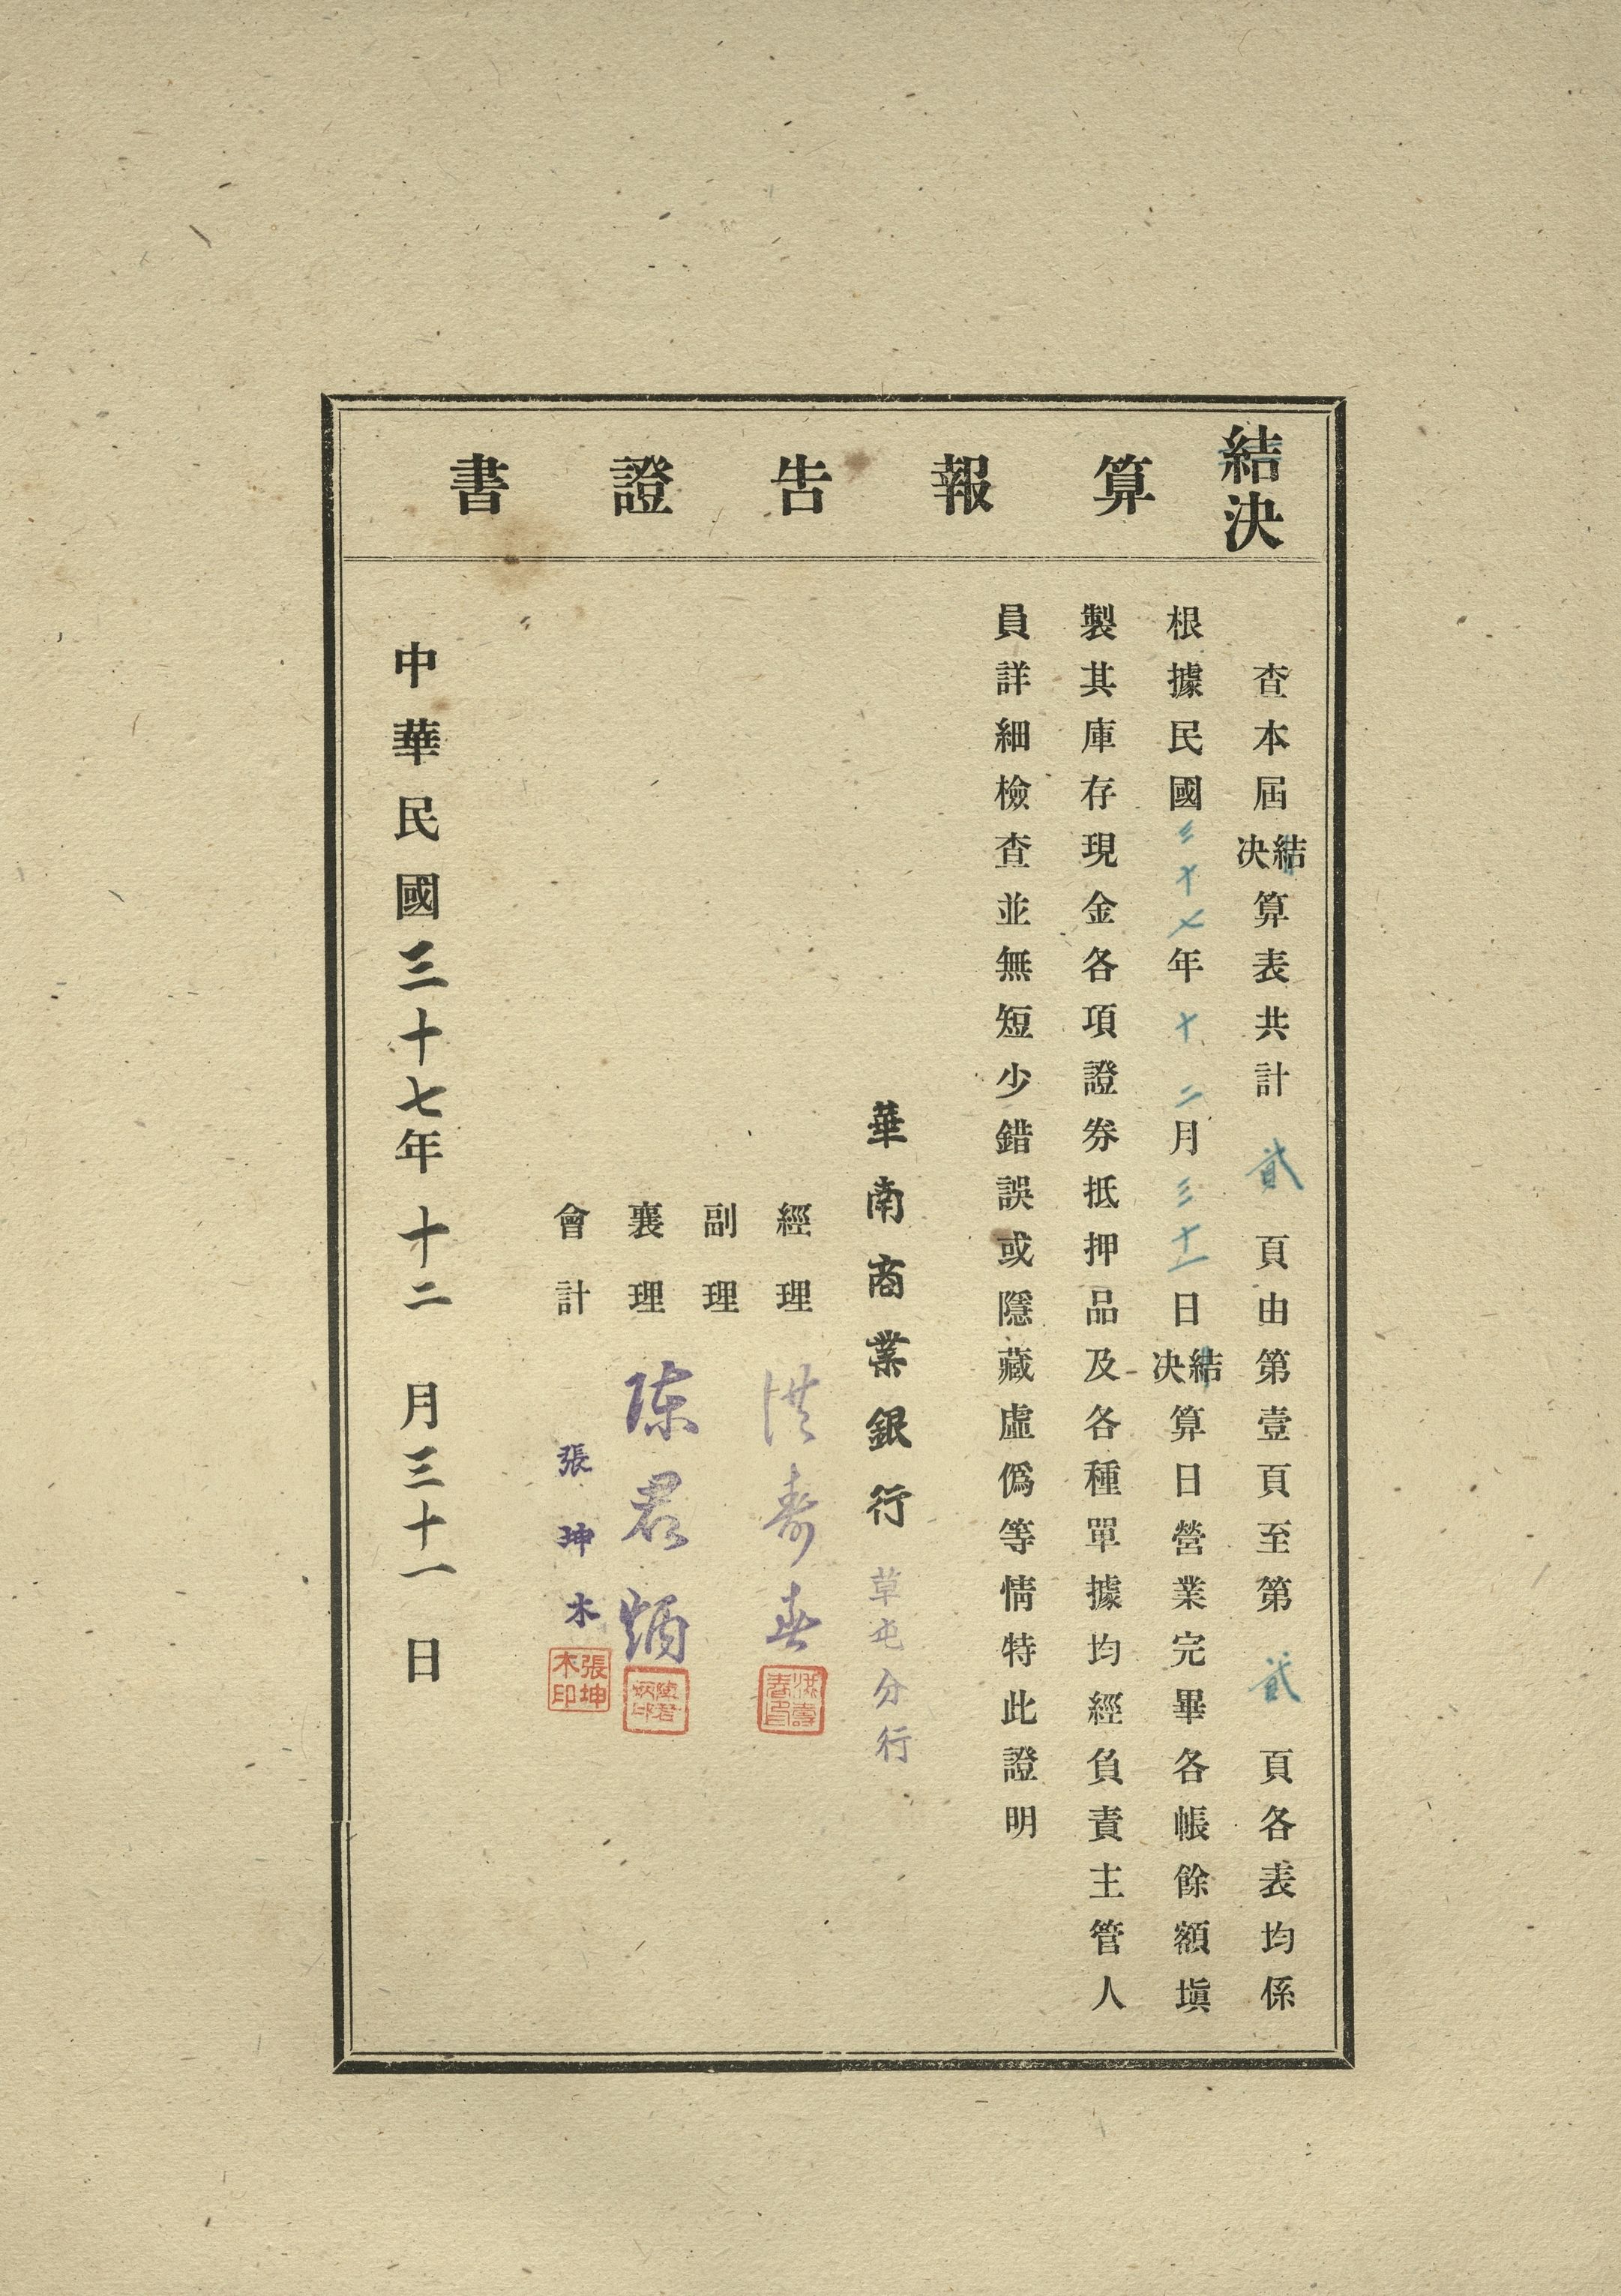 結決算報告證書
查本屆結決算表共計貳頁由第壹頁至第貳頁各表均係
根據民國三十七年十二月三十一日結決算日營業完畢各帳餘額塡
製其庫存現金各項證券抵押品及各種單據均經負責主管人
員詳細檢查並無短少錯誤或隱藏虛僞等情特此證明
華南商業銀行草屯分行
經理 洪壽春 洪壽春印
副理
襄理 陳君炳 陳君炳印
會計 張坤木 張坤木印
中華民國三十七年十二月三十一日